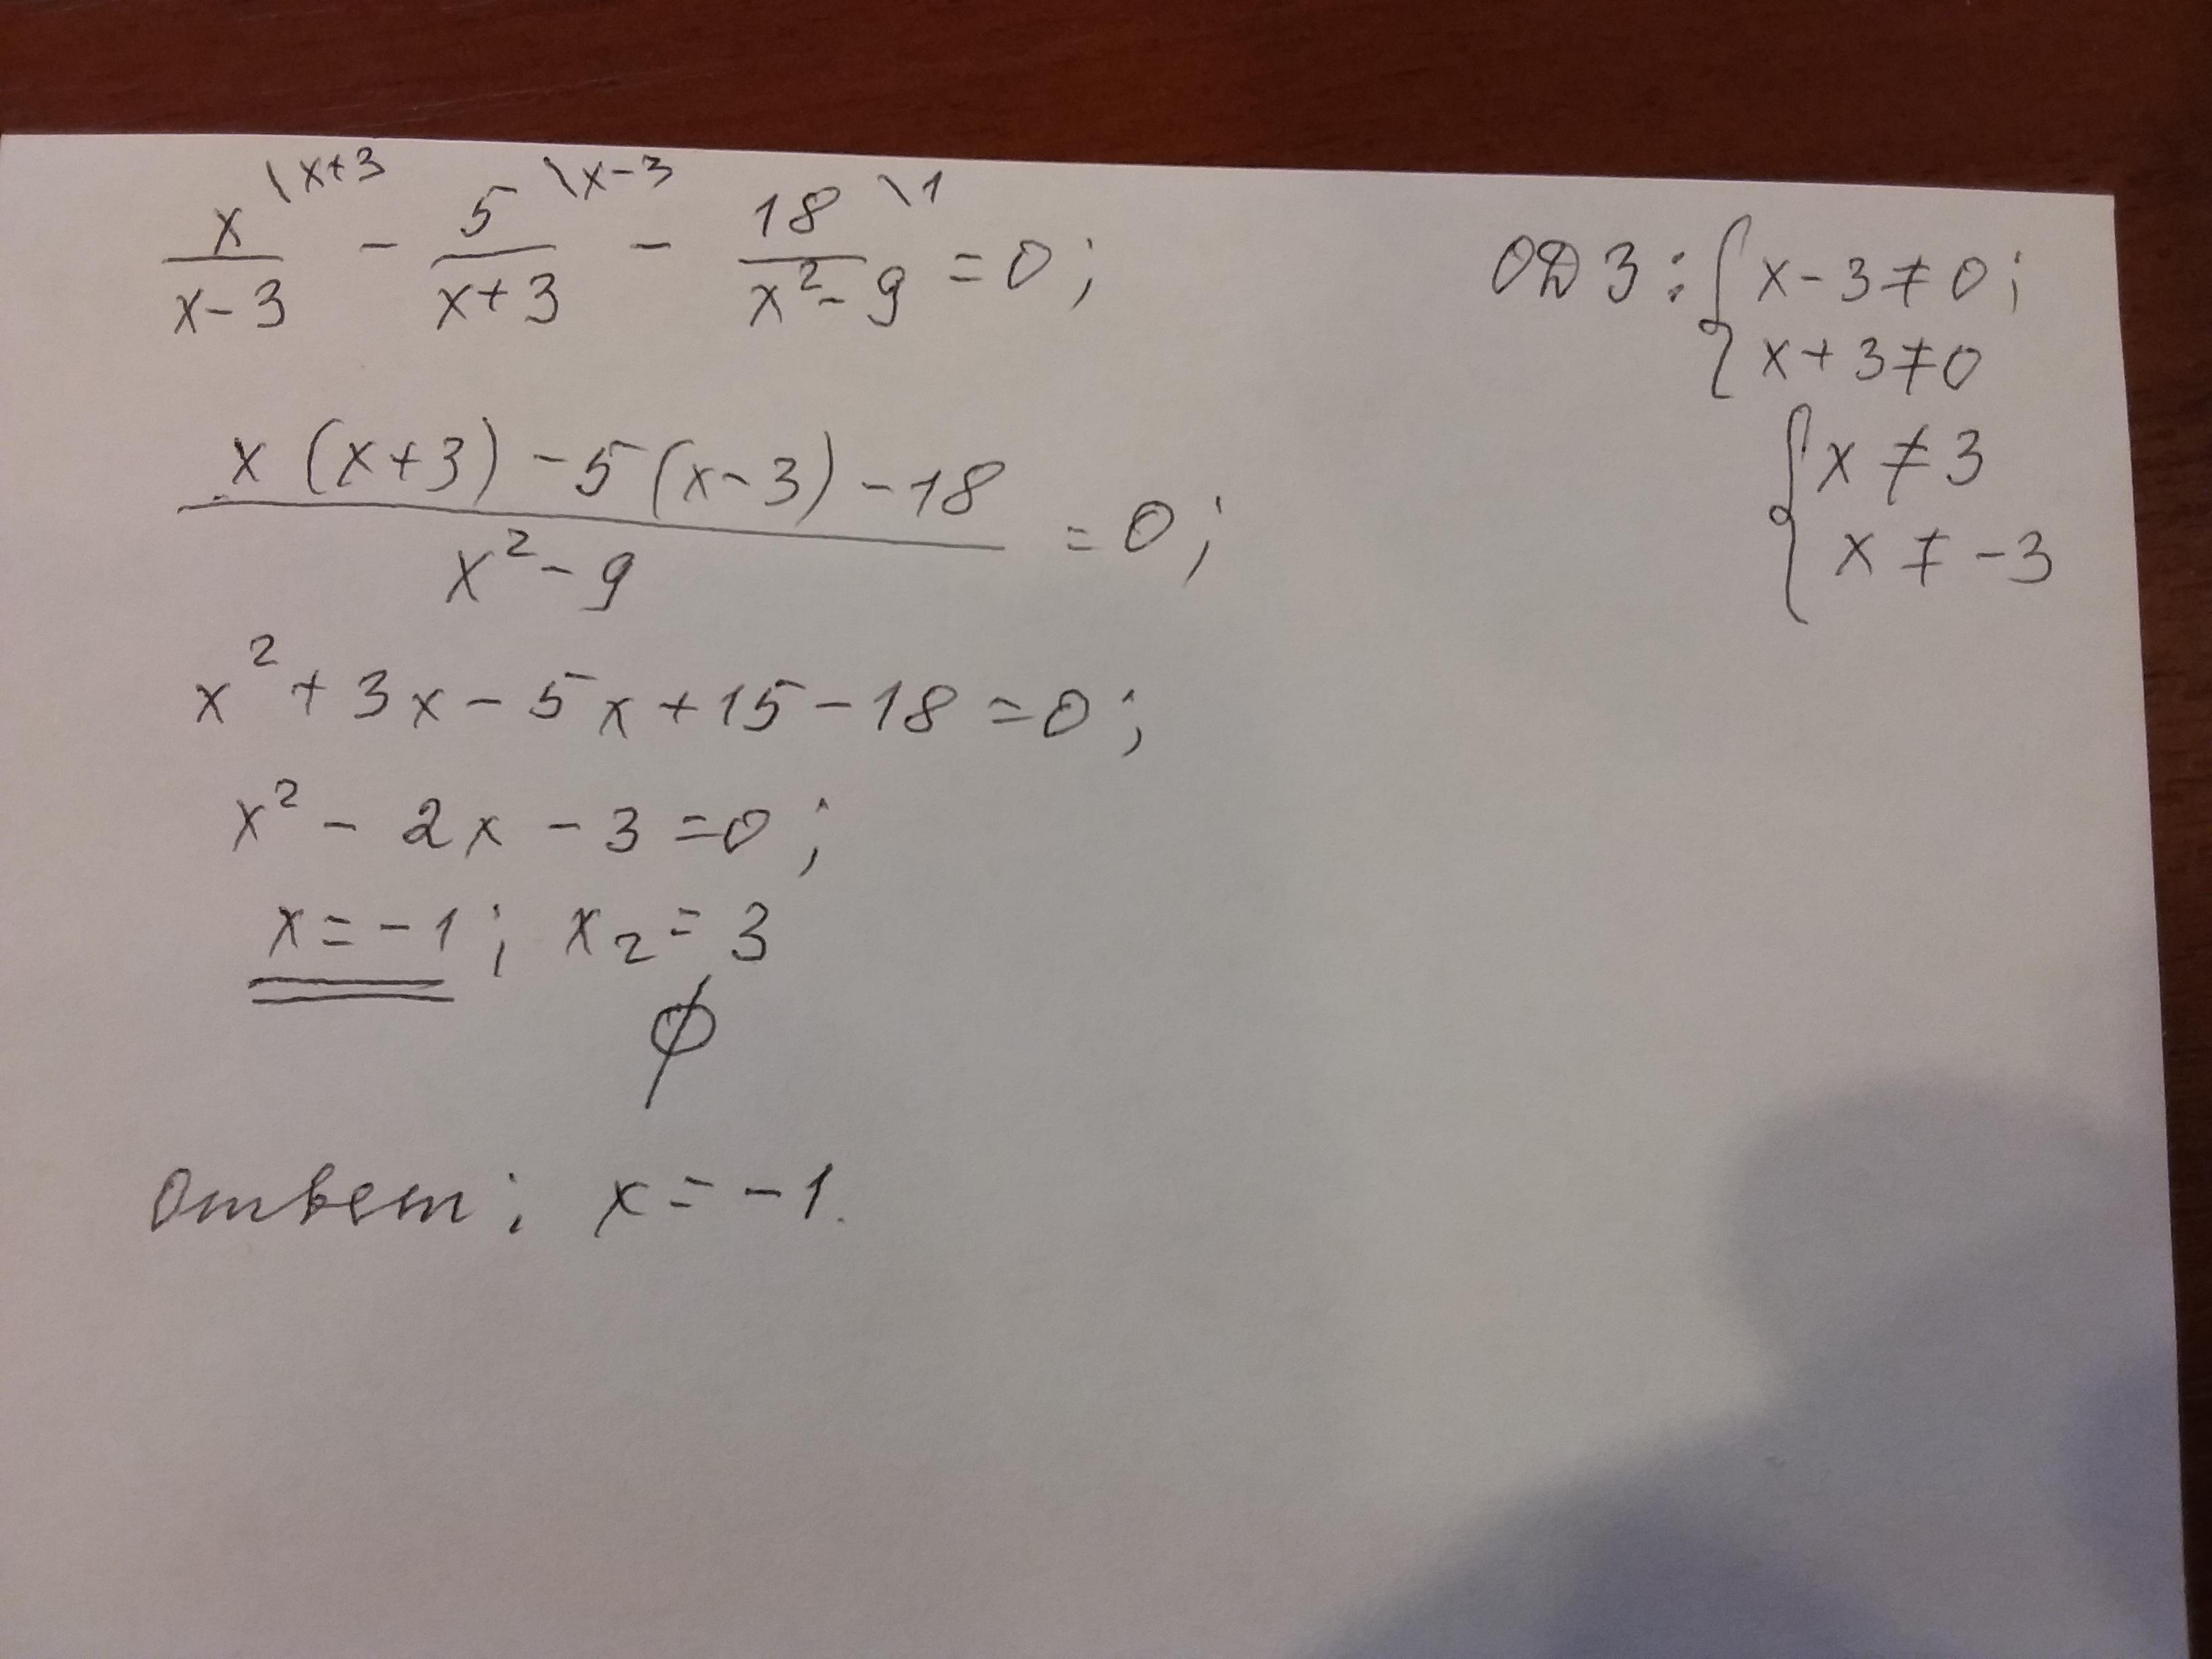 x\x+3 / x-3 - 5\x-3 / x+3 - 18\1 / x²-9 = 0;
ОДЗ: { x-3≠0;
x+3≠0
{ x≠3
x≠-3
x(x+3)-5(x-3)-18 / x²-9 = 0;
x²+3x-5x+15-18=0;
x²-2x-3=0;
x=-1; x₂=3
∅
Ответ: x=-1.